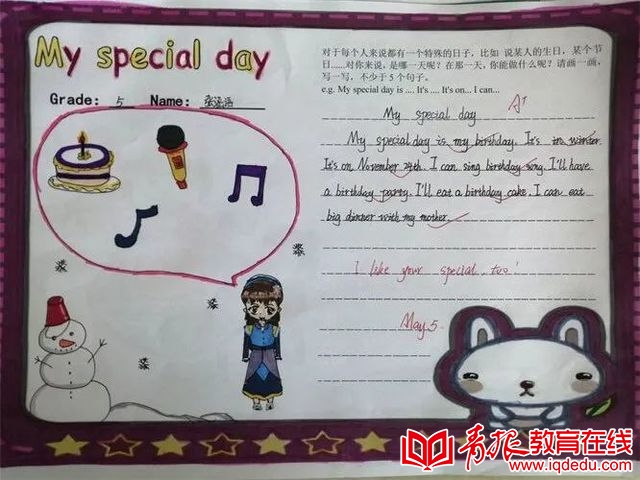 My special day
Grade: 5 Name:
对于每个人来说都有一个特殊的日子，比如 说某人的生日，某个节
日.....对你来说，是哪一天呢？在那一天，你能做什么呢？请画一画，
写一写，不少于 5 个句子。
e.g. My special day is .... It's .... It's on... I can...
My special day
A+
My special day is my birthday. It's in winter.
It's on November 24th. I can sing birthday song. I'll have
a birthday party. I'll eat a birthday cake. I can eat
big dinner with my mother.
I like your special, too!
May 5.
青报教育在线
www.iqdedu.com